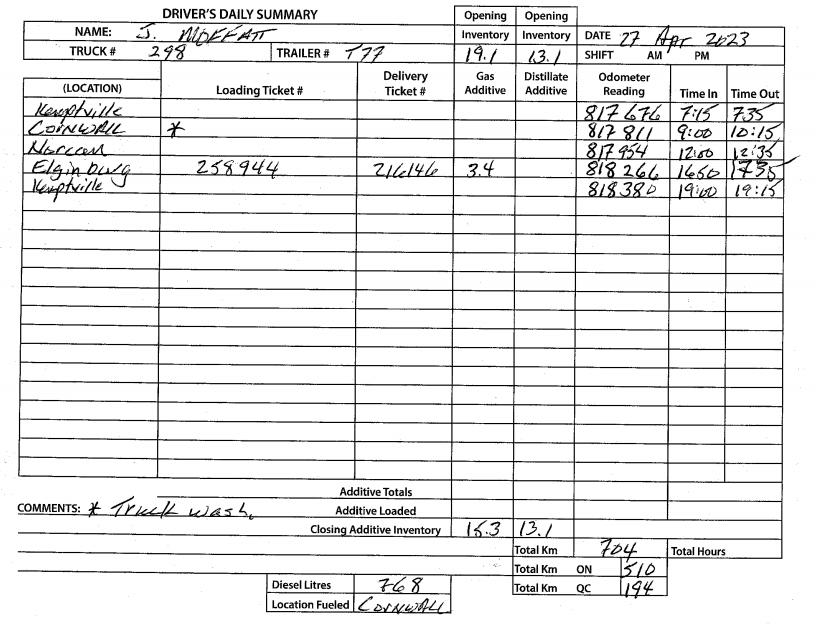 DRIVER'S DAILY SUMMARY Opening Opening
NAME: J. MOFFATT Inventory Inventory DATE 27 Apr 2023
TRUCK # 298 TRAILER # T77 19.1 13.1 SHIFT AM PM
(LOCATION) Loading Ticket # Delivery Ticket # Gas Additive Distillate Additive Odometer Reading Time In Time Out
Kemptville 817676 7:15 735
CORNWALL * 817811 9:00 10:15
817954 12:00 12:35
Elginburg 258944 216146 3.4 818266 1650 1735
Kemptville 818380 19:00 19:15
Additive Totals
COMMENTS: * Truck wash. Additive Loaded
Closing Additive Inventory 15.3 13.1
Total Km 704 Total Hours
Total Km ON 510
Diesel Litres 768 Total Km QC 194
Location Fueled CORNWALL